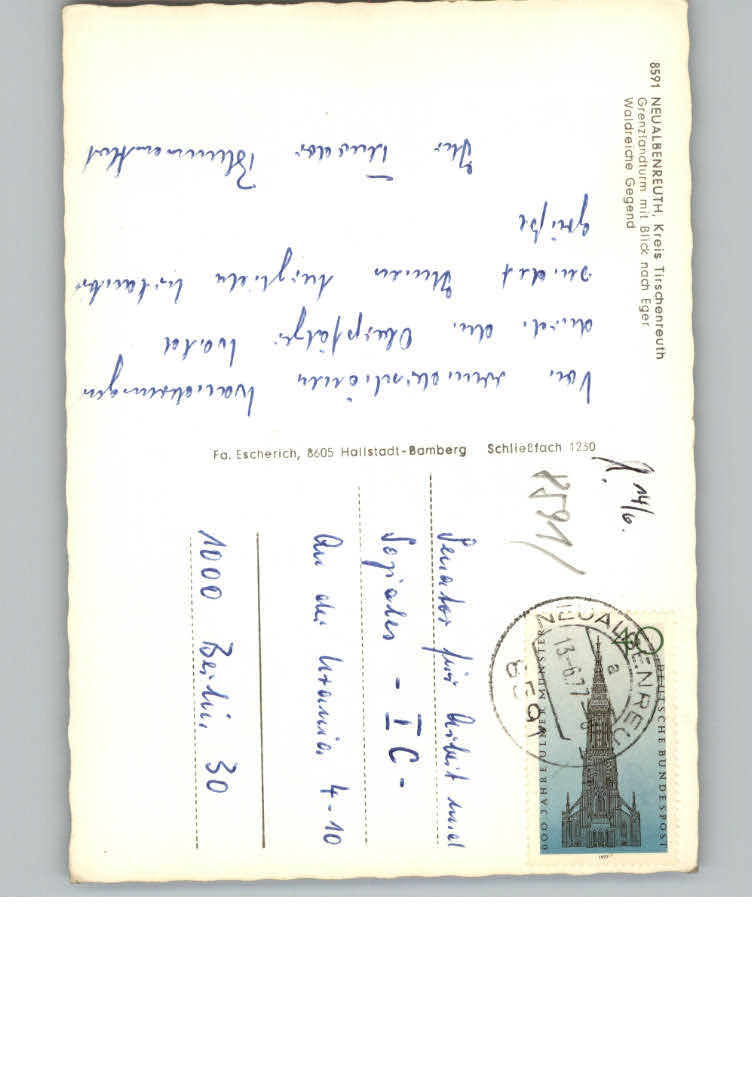 8591 NEUALBENREUTH, Kreis Tirschenreuth
Grenzlandturm mit Blick nach Eger
Waldreiche Gegend
Von wunderschönen Wanderungen
durch den Oberpfälzer Wald
sendet Ihnen herzliche
Grüße
Ihr Theodor
Fa. Escherich, 8605 Hallstadt-Bamberg Schließfach 1230
14/6.
8591/
Senator für Arbeit und
Soziales - I C -
An der Urania 4-10
1000 Berlin 30
NEUALBENREUTH
a
13-6.77
8591
40
DEUTSCHE BUNDESPOST
600 JAHRE ULMER MÜNSTER
1977